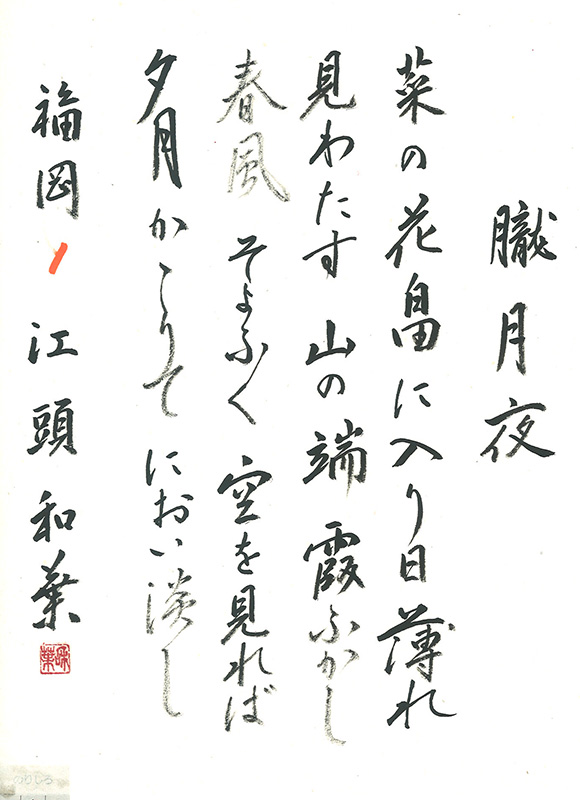 朧月夜
菜の花畠に入り日薄れ
見わたす 山の端 霞ふかし
春風 そよふく 空を見れば
夕月かゝりて におい淡し
福岡 江頭和葉
和葉
のりしろ